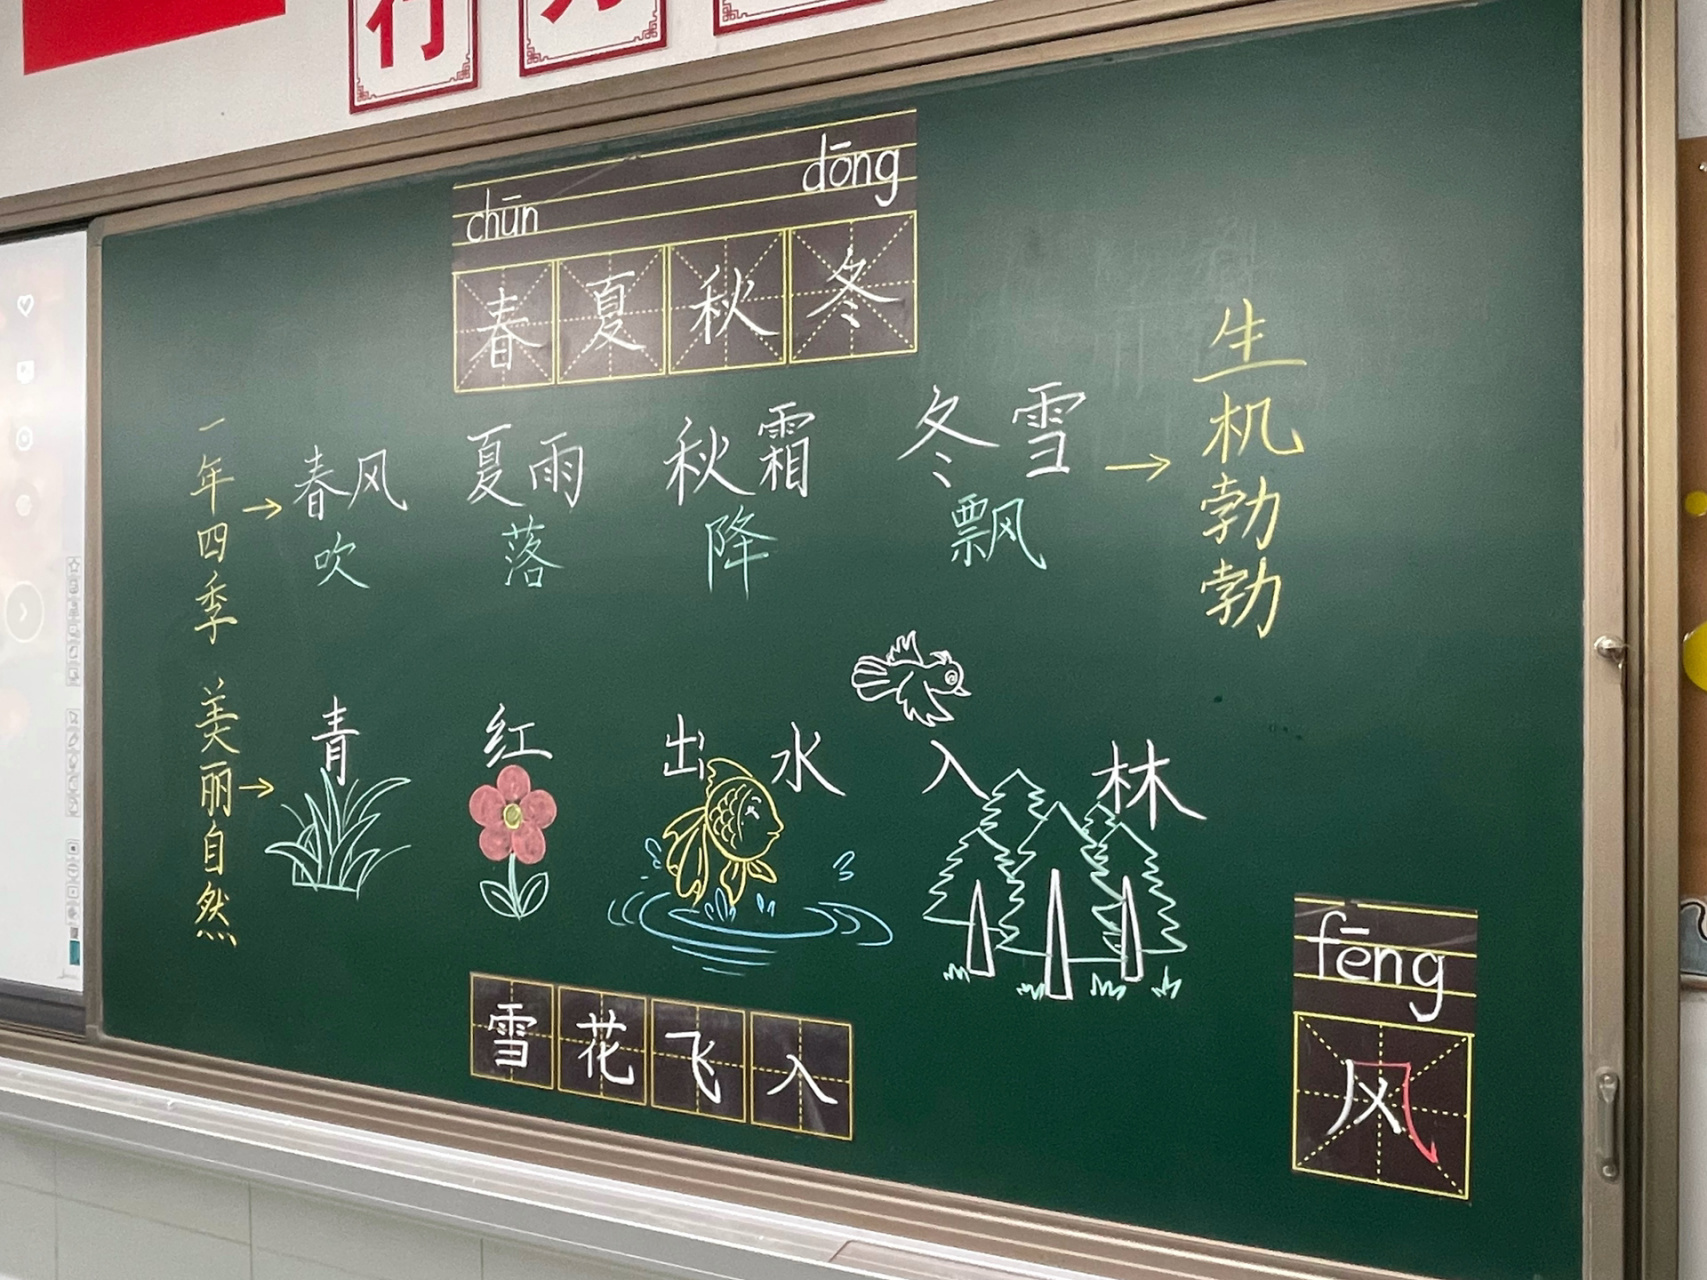 行
chūn dōng
春夏秋冬
一年四季
春风 夏雨 秋霜 冬雪
吹 落 降 飘
生机勃勃
美丽自然
青 红 出水 入林
雪花飞入
fēng
风